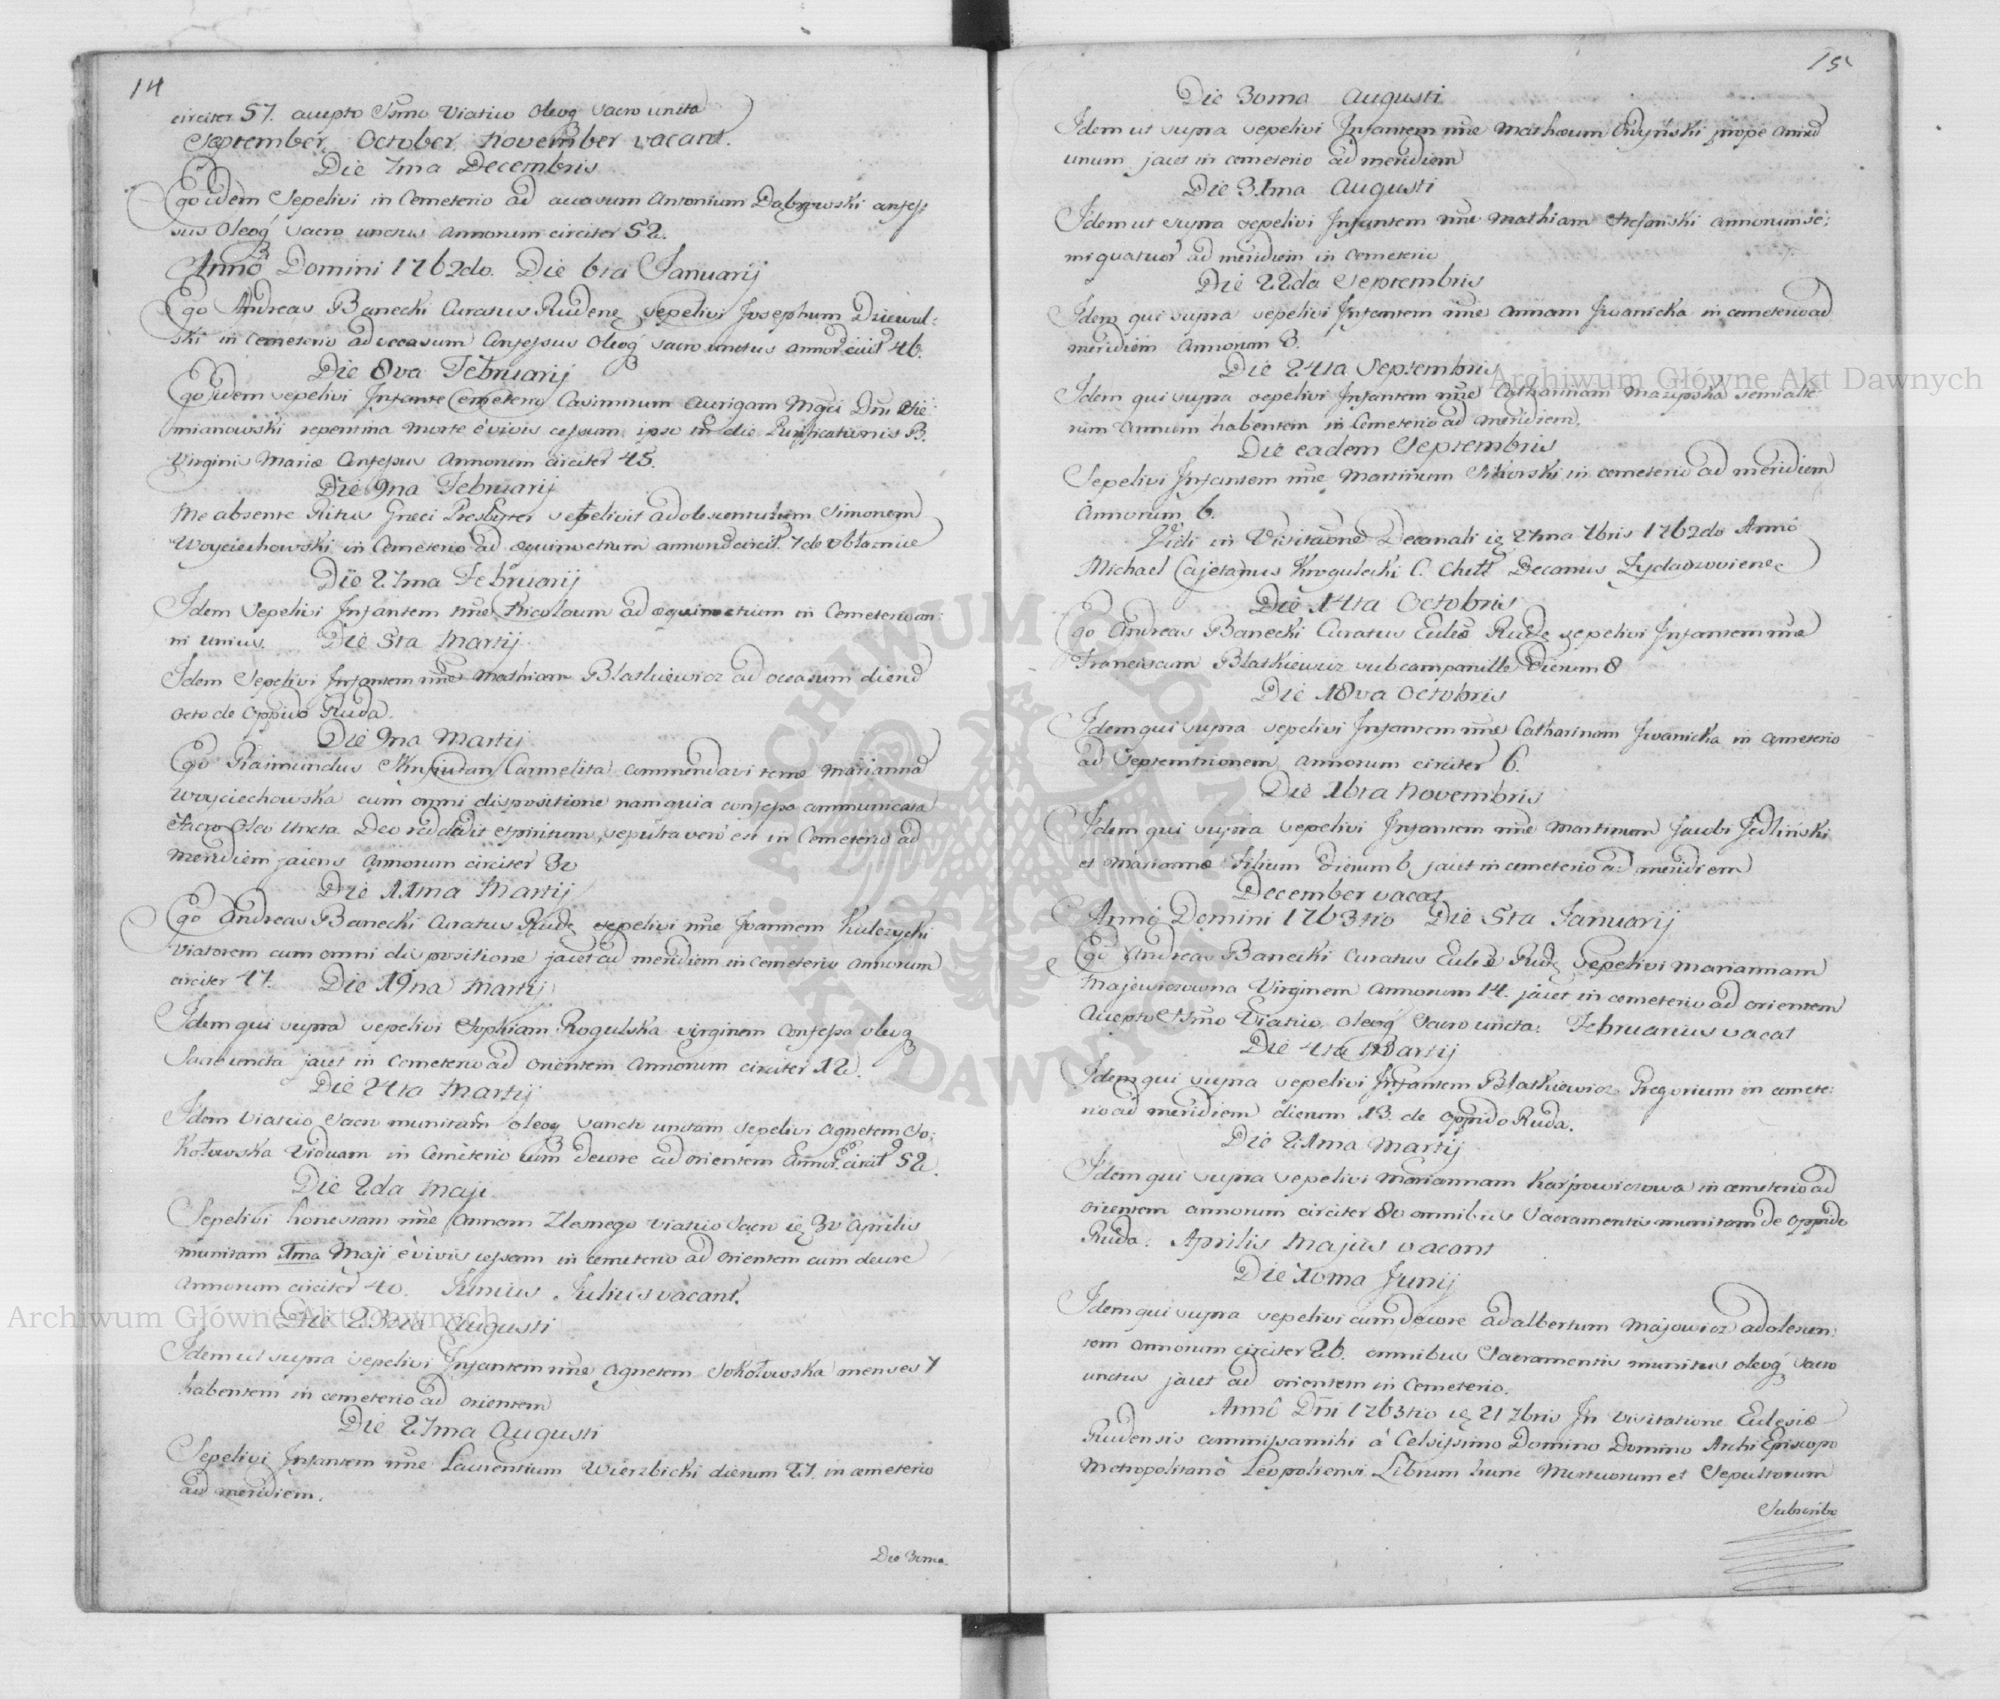 14
circiter 57. accepto Ssmo Viatico Oleoq Sacro uncta
September, October, November vacant.
Die 7ma Decembris
Ego idem Sepelivi in Cemeterio ad occasum Antonium Dąbrowski confes-
sus Oleoq Sacro unctus Annorum circiter 52.
Anno Domini 1762do. Die 6ta Januarij
Ego Andreas Banecki Curatus Rudenę sepelivi Josephum Dziewul:
ski in Cemeterio ad occasum Confessus Oleoq sacro unctus annor circit 46.
Die 8va Februarij
Ego idem sepelivi Cemeterio Casimirum Aurigam Mgci Dni Sie
mianowski repentina morte è vivis cessum ipso in die Purificationis B.
Virginis Mariæ Confessus Annorum circiter 45.
Die 9na Februarij
Me absente Ritus Græci Presbyter sepelivit adolescentulum Simonem
Woyciechowski in Cemeterio ad æquinoctium annor circit. 7 de
Die 27ma Februarij
Idem Sepelivi Infantem nne Nicolaum ad æquinoctium in Cemeterio an:
ni unius. Die 5ta Martij
Idem Sepelivi Infantem nne Mathiam Błatkiewicz ad occasum dierum
octo de Oppido Ruda.
Die 9na Martij
Ego Raimundus Carmelita commendavi terræ Mariannam
Woyciechowska cum omni dispositione nam quia confessa communicata
Sacro Oleo Uncta Deo reddidit spiritum, sepulta vero est in Cemeterio ad
Meridiem jacens Annorum circiter 30
Die 11ma Martij
Ego Andreas Banecki Curatus Rudę sepelivi nne Joannem Kulczycki
Viatorem cum omni dispositione jacet ad meridiem in Cemeterio annorum
circiter 47. Die 19na Martij
Idem qui supra sepelivi Sophiam Rogulska virginem confessa oleoq
Sacro uncta jacet in Cemeterio ad Orientem Annorum circiter 12.
Die 24ta Martij
Idem Viatico Sacro munitam oleoq sancto unctam sepelivi Agnetem So:
kołowska Viduam in Cemeterio cum decore ad orientem Annor. circit 52.
Die 2da Maji
Sepelivi honestam nne Annam Zlesnego viatico sacro 30 Aprilis
munitam 1ma Maji è vivis cessam in cemeterio ad orientem cum decore
Annorum circiter 40. Junius Julius vacant.
Die 23tia Augusti
Idem ut supra sepelivi Infantem nne Agnetem Sokołowska menses 7
habentem in cemeterio ad orientem
Die 27ma Augusti
Sepelivi Infantem nne Laurentium Wierzbicki dierum 27. in cemeterio
ad meridiem.
Die 30ma.
15
Die 30ma Augusti
Idem ut supra sepelivi Infantem nne Mathæum prope annum
unum jacet in cemeterio ad meridiem
Die 31ma Augusti
Idem ut supra sepelivi Infantem nne Mathiam Stefański annorum se:
mi quatuor ad meridiem in cemeterio
Die 22da Septembris
Idem qui supra sepelivi Infantem nne Annam Iwanicka in cemeterio ad
meridiem Annorum 3.
Die 24ta Septembris
Idem qui supra sepelivi Infantem nne Catharinam Mazepska semialte
rum Annum habentem in Cemeterio ad meridiem.
Die eadem Septembris
Sepelivi Infantem nne Martinum Sikorski in cemeterio ad meridiem
Annorum 6.
Vidi in Visitaone Decanali 27ma 7bris 1762do Anno
Michael Cajetanus Krogulecki C. Decanus
Die 14ta Octobris
Ego Andreas Banecki Curatus Eccl̃ Rudę sepelivi Infantem nne
Franciscum Błatkiewicz sub campanille Dierum 8
Die 18va Octobris
Idem qui supra sepelivi Infantem nne Catharinam Iwanicka in cemeterio
ad Septemtrionem annorum circiter 6.
Die 16ta Novembris
Idem qui supra sepelivi Infantem nne Martinum Jacobi Jedliński
et Mariannæ Filium dierum 6 jacet in cemeterio ad meridiem
December vacat
Anno Domini 1763tio Die 5ta Januarij
Ego Andreas Banecki Curatus Eccl̃ Rudę sepelivi Mariannam
Majewiczowna Virginem annorum 14. jacet in cemeterio ad orientem
Accepto Ssmo Viatico Oleoq Sacro uncta. Februarius vacat
Die 4ta Martij
Idem qui supra sepelivi Infantem Błatkiewicz Gregorium in cemete:
rio ad meridiem dierum 13. de Oppido Ruda.
Die 21ma Martij
Idem qui supra sepelivi Mariannam Karpowiczowa in cemeterio ad
orientem annorum circiter 80 omnibus Sacramentis munitam de Oppido
Ruda. Aprilis Majus vacant
Die 10ma Junij
Idem qui supra sepelivi cum decore Adalbertum Majowicz adolescen:
tem annorum circiter 26. omnibus Sacramentis munitus oleoq sacro
unctus jacet ad orientem in Cemeterio.
Anno Dni 1763tio 21 7bris In Visitatione Ecclesiæ
Rudensis commissa mihi à Celsissimo Domino Domino Archi Episcopo
Metropolitano Leopoliensi Librum hunc Mortuorum et Sepultorum
Subscribo
Archiwum Główne Akt Dawnych
Archiwum Główne Akt Dawnych
ARCHIWUM GŁÓWNE AKT DAWNYCH